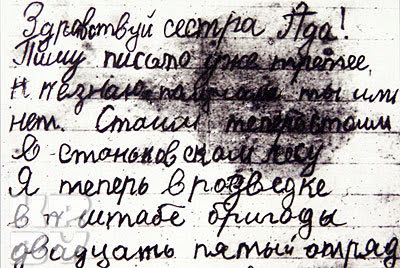 Здравствуй сестра Ада!
Пишу письмо уже третее
и незнаю получила ты или
нет. Стоим теперь стоим
в станьковском лесу
Я теперь в розведке
в п штабе бригоды
двадцать пятый отряд